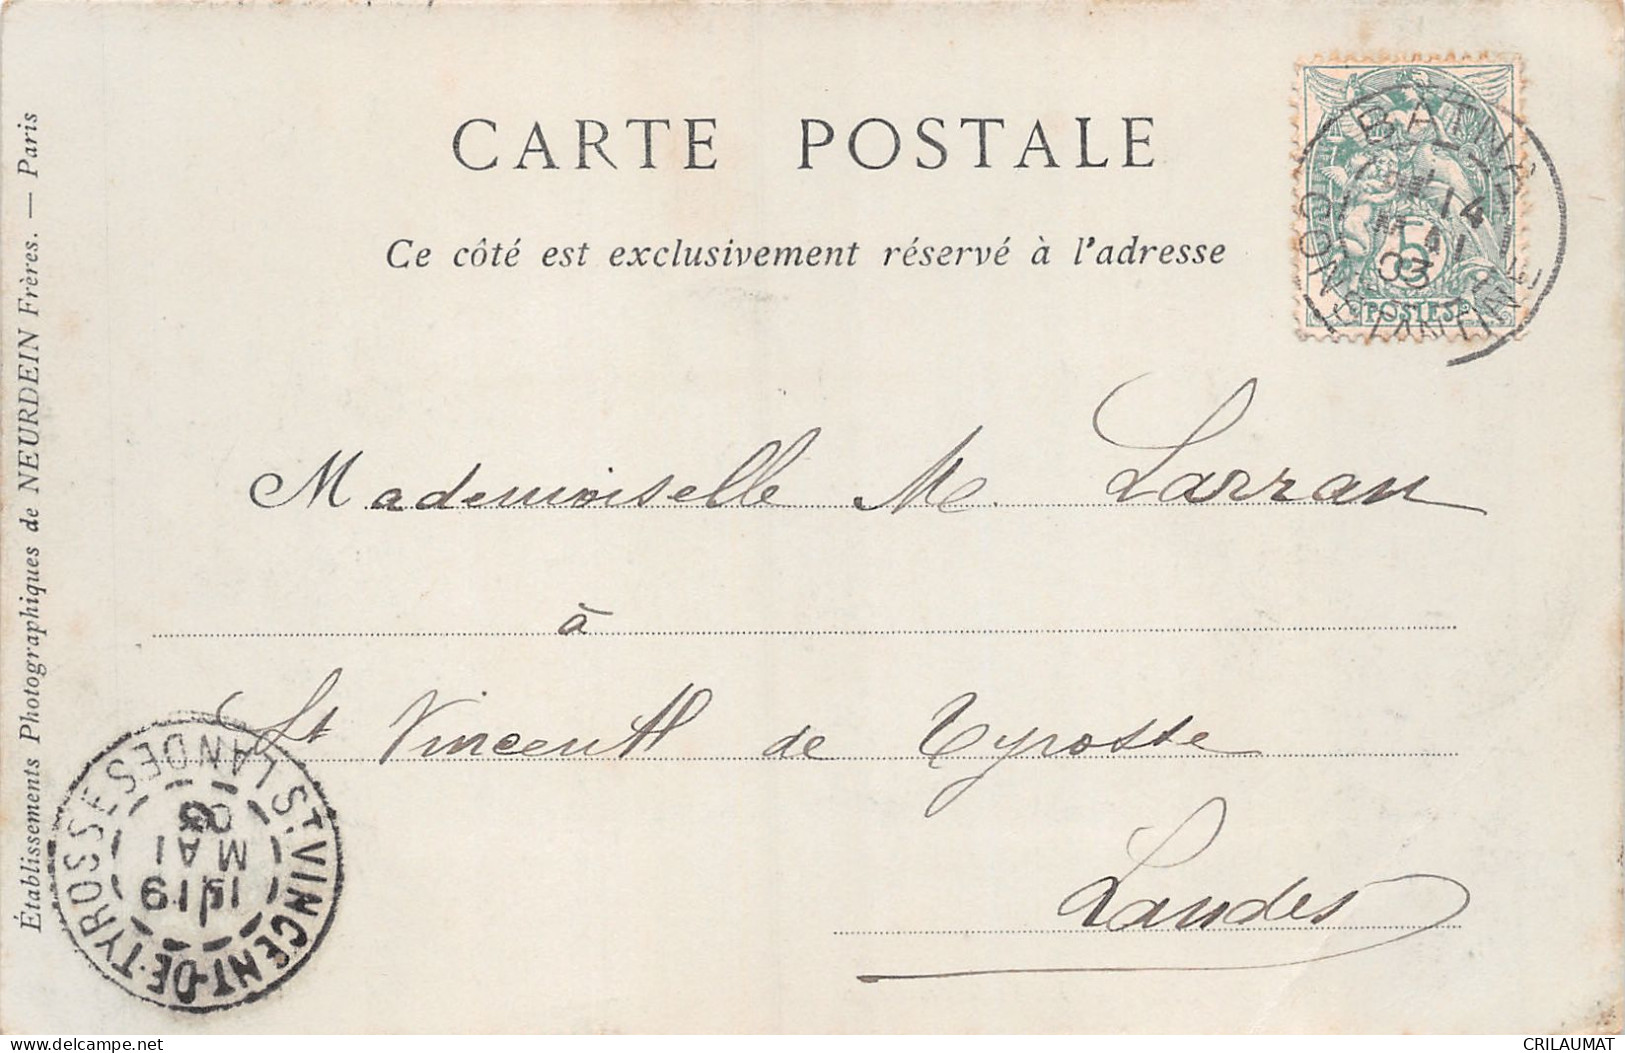 CARTE POSTALE
Ce côté est exclusivement réservé à l'adresse
BATNA
14
MAI
03
CONSTANTINE
5
POSTES
Mademoiselle M. Larran
à
St Vincent de Tyrosse
Landes
ST VINCENT-DE-TYROSSE
LANDES
19
MAI
03
Établissements Photographiques de NEURDEIN Frères. — Paris
delcampe.net
CRILAUMAT